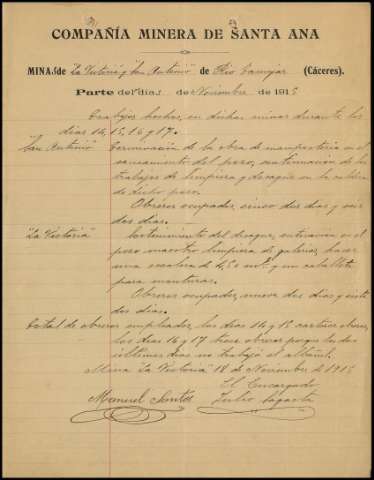 COMPAÑÍA MINERA DE SANTA ANA
MINAS de "La Victoria" y "San Antonio" de (Cáceres).
Parte del días de Noviembre de 191
Trabajos hechos, en dichas minas durante los
días 14, 15, 16 y 17.
"San Antonio" Terminación de la obra de mampostería en el
saneamiento del pozo, continuación de los
trabajos de limpieza y desagüe en la caldera
de dicho pozo.
Obreros ocupados, cinco dos días y seis
dos días.
"La Victoria" Sostenimiento del desagüe, entivación en el
pozo maestro limpieza de galerías, hacer
una escalera de 4,50 mts. y un caballete
para monturas.
Obreros ocupados, nueve dos días y siete
dos días.
Total de obreros empleados, los días 14 y 15 catorce obreros,
los días 16 y 17 trece obreros porque los dos
últimos días no trabajó el albañil.
Mina "La Victoria" 18 de Noviembre de 191
El Encargado
Manuel Santos Julio